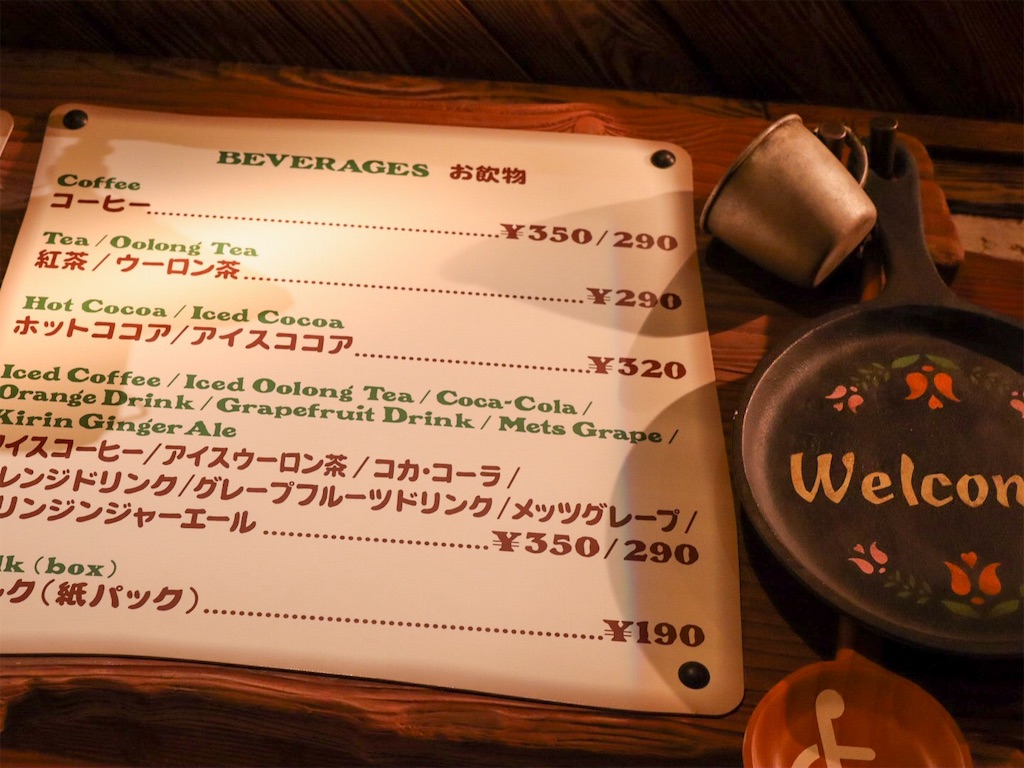 BEVERAGES お飲物
Coffee
コーヒー ¥350/290
Tea / Oolong Tea
紅茶/ウーロン茶 ¥290
Hot Cocoa / Iced Cocoa
ホットココア/アイスココア ¥320
Iced Coffee / Iced Oolong Tea / Coca-Cola /
Orange Drink / Grapefruit Drink / Mets Grape /
Kirin Ginger Ale
アイスコーヒー/アイスウーロン茶/コカ·コーラ/
レンジドリンク/グレープフルーツドリンク/メッツグレープ/
リンジンジャーエール ¥350/290
lk (box)
ルク(紙パック) ¥190
Welcom